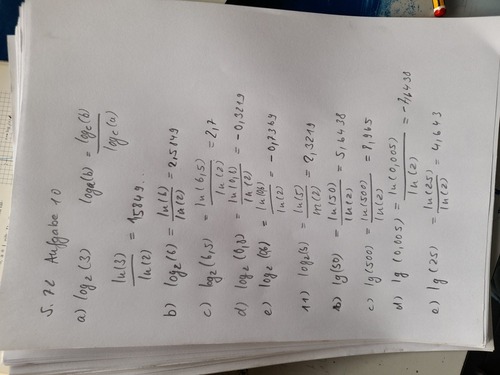 S. 72 Aufgabe 10
a) log₂(3) logₐ(b) = log_c(b) / log_c(a)
ln(3) / ln(2) = 1,5849...
b) log₂(6) = ln(6) / ln(2) = 2,5849
c) log₂(6,5) = ln(6,5) / ln(2) = 2,7
d) log₂(0,8) = ln(0,8) / ln(2) = -0,3219
e) log₂(0,6) = ln(0,6) / ln(2) = -0,7369
11) log₂(5) = ln(5) / ln(2) = 2,3219
b) lg(50) = ln(50) / ln(2) = 5,6438
c) lg(500) = ln(500) / ln(2) = 8,965
d) lg (0,005) = ln(0,005) / ln(2) = -7,6438
e) lg (25) = ln(25) / ln(2) = 4,643